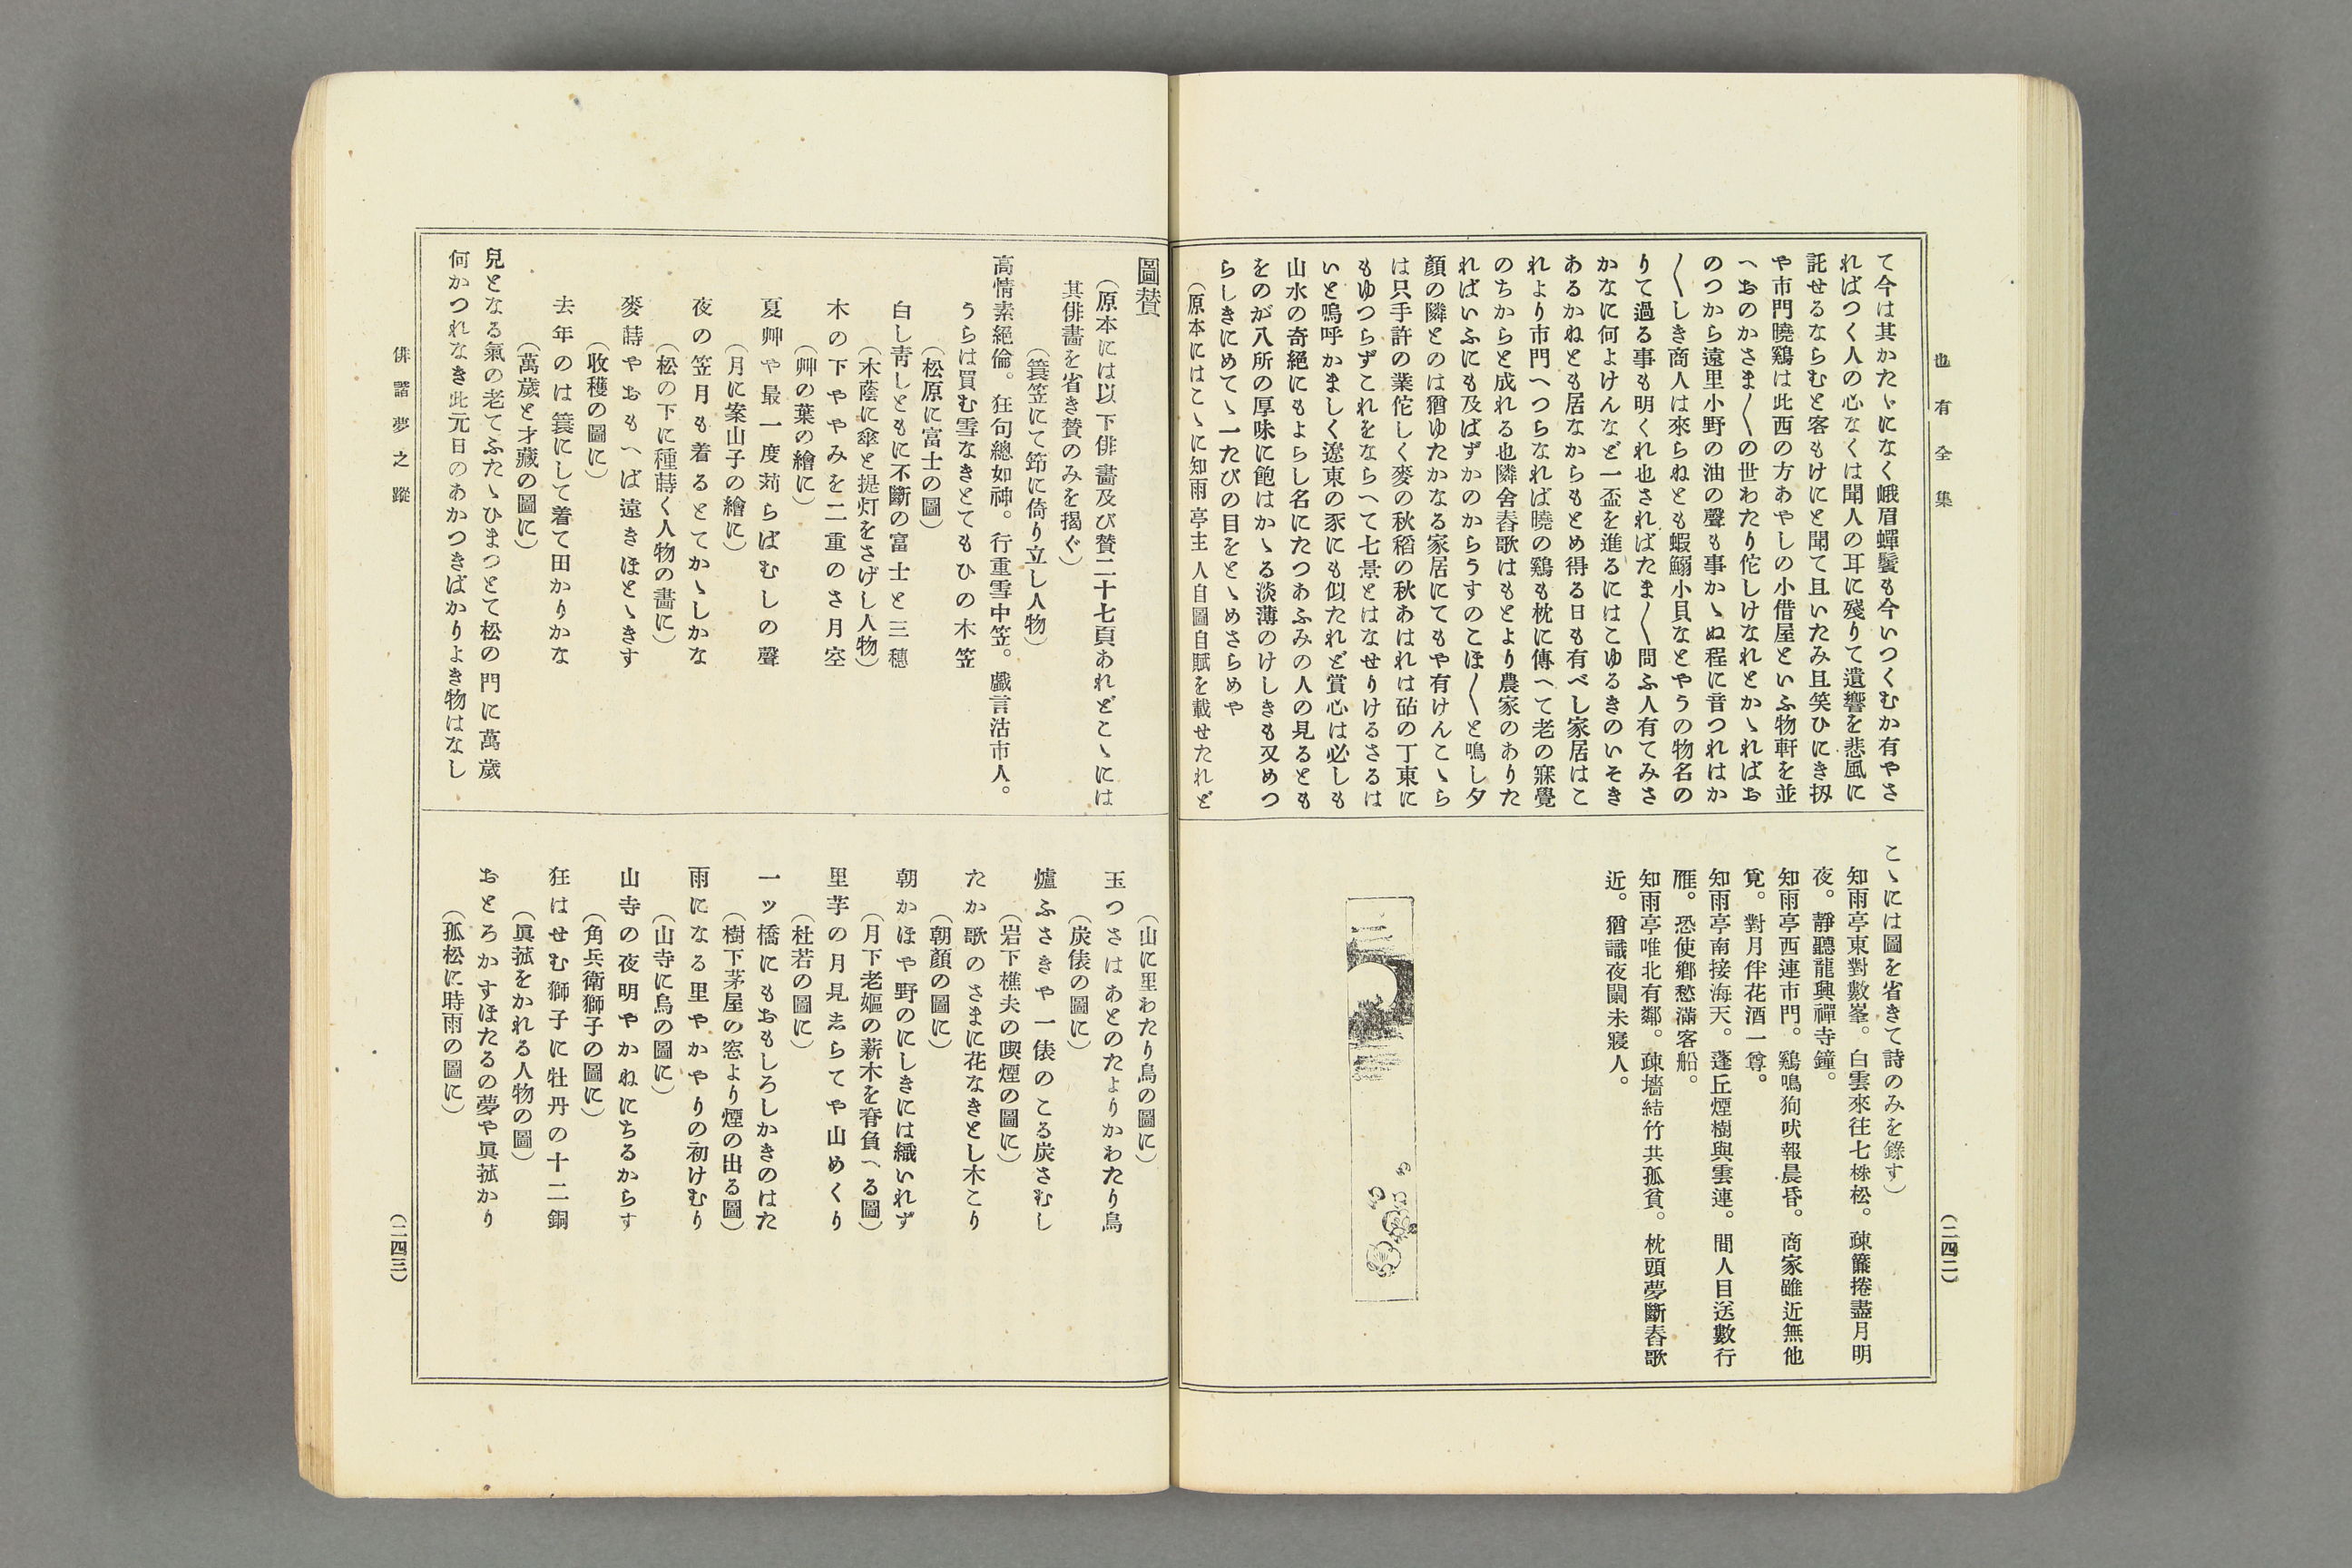 也有全集
て今は其かたゝになく峨眉蟬鬢も今いつくむか有やさ
ればつく人の心なくは聞人の耳に殘りて遺響を悲風に
託せるならむと客もけにと聞て且いたみ且笑ひにき扨
や市門曉鷄は此西の方あやしの小借屋といふ物軒を並
へおのかさま〱の世わたり佗しけなれとかゝればお
のつから遠里小野の油の聲も事かゝぬ程に音つれはか
〱しき商人は來らねとも蝦鰯小貝なとやうの物名の
りて過る事も明くれ也さればたま〱問ふ人有てみさ
かなに何よけんなど一盃を進るにはこゆるきのいそき
あるかねとも居なからもとめ得る日も有べし家居はこ
れより市門へつらなれば曉の鷄も枕に傳へて老の寐覺
のちからと成れる也隣舍舂歌はもとより農家のありた
ればいふにも及ばずかのからうすのこほ〱と鳴し夕
顏の隣とのは猶ゆたかなる家居にてもや有けんこゝら
は只手許の業佗しく麥の秋稻の秋あはれは砧の丁東に
もゆつらずこれをならへて七景とはなせりけるさるは
いと嗚呼かましく遼東の豕にも似たれど賞心は必しも
山水の奇絕にもよらし名にたつあふみの人の見るとも
をのが八所の厚味に飽はかゝる淡薄のけしきも又めつ
らしきにめてゝ一たびの目をとゝめさらめや
（原本にはこゝに知雨亭主人自圖自賦を載せたれど
こゝには圖を省きて詩のみを錄す）
知雨亭東對數峯。白雲來往七株松。疎簾捲盡月明
夜。靜聽龍興禪寺鐘。
知雨亭西連市門。鷄鳴狗吠報晨昏。商家雖近無他
覓。對月伴花酒一尊。
知雨亭南接海天。蓬丘煙樹與雲連。間人目送數行
雁。恐使鄕愁滿客船。
知雨亭唯北有鄰。疎墻結竹共孤貧。枕頭夢斷舂歌
近。猶識夜闌未寢人。
（二四二）
圖賛
（原本には以下俳畫及び賛二十七頁あれどこゝには
其俳畫を省き賛のみを揭ぐ）
（簑笠にて筇に倚り立し人物）
高情素絕倫。狂句總如神。行重雪中笠。戲言沽市人。
うらは買む雪なきとてもひの木笠
（松原に富士の圖）
白し靑しともに不斷の富士と三穗
（木蔭に傘と提灯をさげし人物）
木の下ややみを二重のさ月空
（艸の葉の繪に）
夏艸や最一度苅らばむしの聲
（月に案山子の繪に）
夜の笠月も着るとてかゝしかな
（松の下に種蒔く人物の畵に）
麥蒔やおもへば遠きほとゝきす
（收穫の圖に）
去年のは簑にして着て田かりかな
（萬歲と才藏の圖に）
兒となる氣の老てふたゝひまつとて松の門に萬歲
何かつれなき此元日のあかつきばかりよき物はなし
（山に里わたり鳥の圖に）
玉つさはあとのたよりかわたり鳥
（炭俵の圖に）
爐ふさきや一俵のこる炭さむし
（岩下樵夫の喫煙の圖に）
たか歌のさまに花なきとし木こり
（朝顏の圖に）
朝かほや野のにしきには織いれず
（月下老嫗の薪木を脊負へる圖）
里芋の月見志らてや山めくり
（杜若の圖に）
一ッ橋にもおもしろしかきのはた
（樹下茅屋の窓より煙の出る圖）
雨になる里やかやりの初けむり
（山寺に烏の圖に）
山寺の夜明やかねにちるからす
（角兵衞獅子の圖に）
狂はせむ獅子に牡丹の十二銅
（眞菰をかれる人物の圖）
おとろかすほたるの夢や眞菰かり
（孤松に時雨の圖に）
俳諧夢之蹤
（二四三）